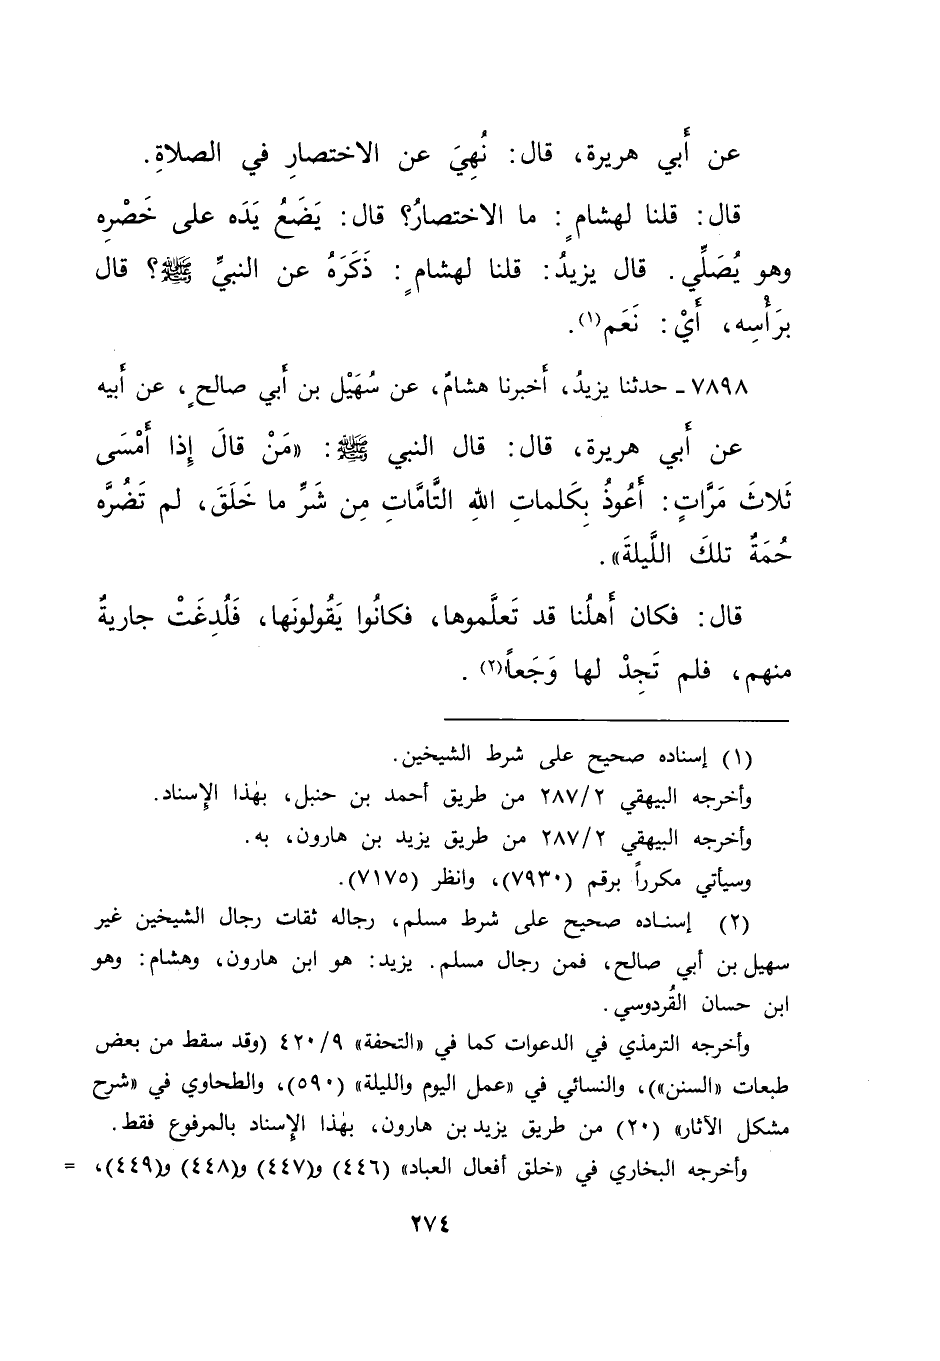 عن أَبي هريرة، قال: نُهِيَ عن الاختصارِ في الصلاةِ.
قال: قلنا لهشامٍ: ما الاختصارُ؟ قال: يَضَعُ يَدَه على خَصْرِه
وهو يُصَلِّي. قال يزيدُ: قلنا لهشامٍ: ذَكَرَهُ عن النبيِّ ﷺ؟ قال
برَأْسِه، أَيْ: نَعَم(١).
٧٨٩٨ - حدثنا يزيدُ، أَخبرنا هشامٌ، عن سُهَيْل بن أَبي صالحٍ، عن أَبيه
عن أَبي هريرة، قال: قال النبي ﷺ: «مَنْ قالَ إِذا أَمْسَى
ثَلاثَ مَرَّاتٍ: أَعُوذُ بِكَلماتِ اللهِ التَّامَّاتِ مِن شَرِّ ما خَلَقَ، لم تَضُرَّه
حُمَةٌ تلكَ اللَّيلةَ».
قال: فكان أَهلُنا قد تَعلَّموها، فكانُوا يَقُولونَها، فَلُدِغَتْ جاريةٌ
منهم، فلم تَجِدْ لها وَجَعاً(٢).
(١) إسناده صحيح على شرط الشيخين.
وأخرجه البيهقي ٢٨٧/٢ من طريق أحمد بن حنبل، بهٰذا الإِسناد.
وأخرجه البيهقي ٢٨٧/٢ من طريق يزيد بن هارون، به.
وسيأتي مكرراً برقم (٧٩٣٠)، وانظر (٧١٧٥).
(٢) إسناده صحيح على شرط مسلم، رجاله ثقات رجال الشيخين غير
سهيل بن أبي صالح، فمن رجال مسلم. يزيد: هو ابن هارون، وهشام: وهو
ابن حسان القُردوسي.
وأخرجه الترمذي في الدعوات كما في «التحفة» ٤٢٠/٩ (وقد سقط من بعض
طبعات «السنن»)، والنسائي في «عمل اليوم والليلة» (٥٩٠)، والطحاوي في «شرح
مشكل الآثار» (٢٠) من طريق يزيد بن هارون، بهٰذا الإِسناد بالمرفوع فقط.
وأخرجه البخاري في «خلق أفعال العباد» (٤٤٦) و(٤٤٧) و(٤٤٨) و(٤٤٩)، =
٢٧٤